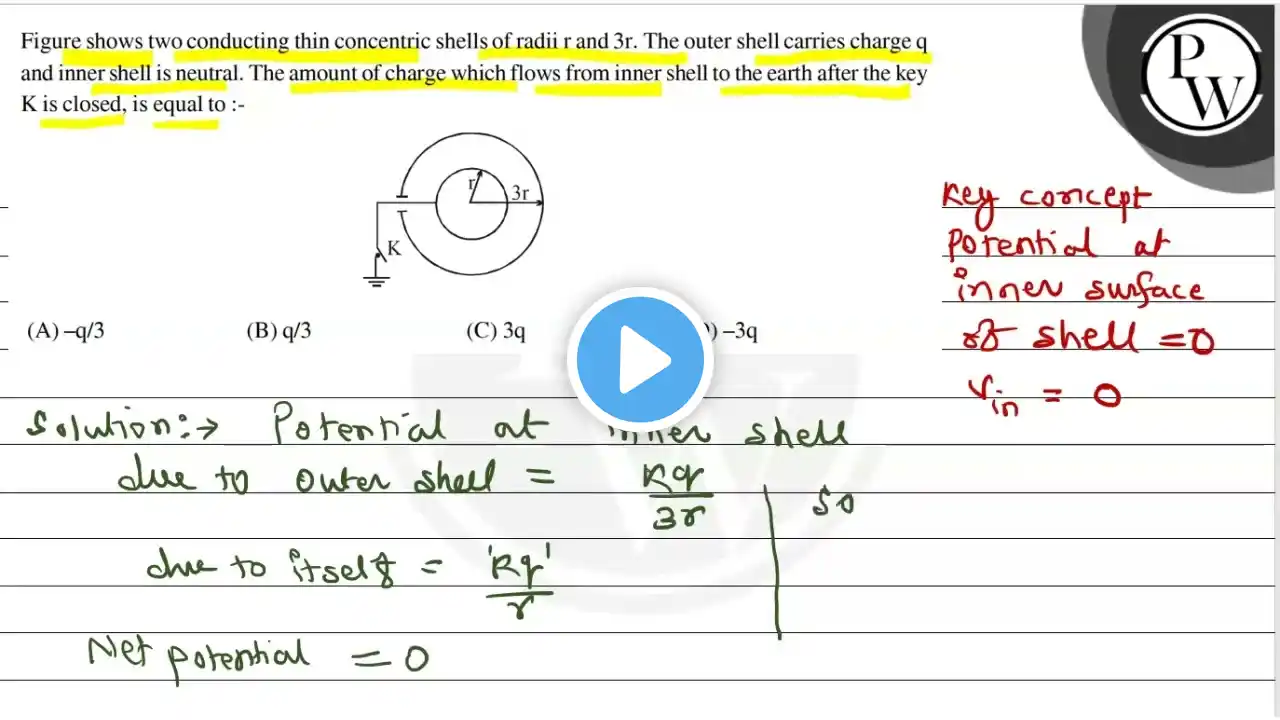 Figure shows two conducting thin concentric shells of radii r and 3r. The outer shell carries charge q
and inner shell is neutral. The amount of charge which flows from inner shell to the earth after the key
K is closed, is equal to :-
P
W
r
3r
K
(A) –q/3 (B) q/3 (C) 3q ) –3q
Key concept
Potential at
inner surface
of shell = 0
Vin = 0
Solution:→ Potential at inner shell
due to outer shell = Kq/3r
so
due to itself = 'Kq'/r
Net potential = 0